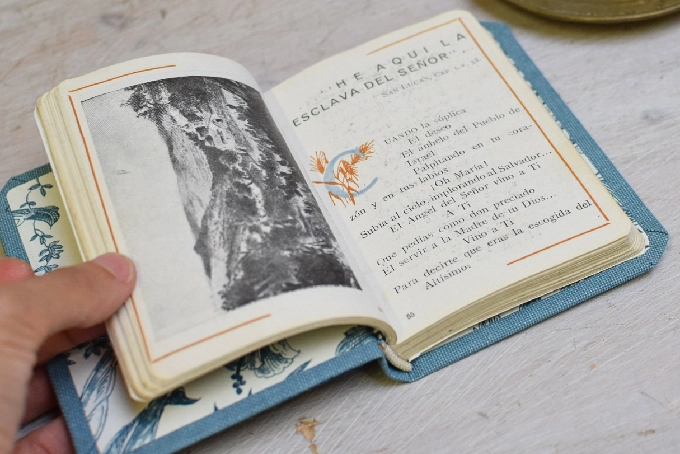 "HE AQUI LA
ESCLAVA DEL SEÑOR"..
SAN LUCAS, CAP. I, V.
CUANDO la súplica
El deseo
El anhelo del Pueblo de
Israel
Palpitando en tu cora-
zón y en tus labios
¡Oh María!
Subía al cielo, implorando al Salvador...
El Angel del Señor vino a Ti
A Ti
Que pedías como don preciado
El servir a la Madre de tu Dios...
Vino a Ti
Para decirte que eras la escogida del
Altísimo.